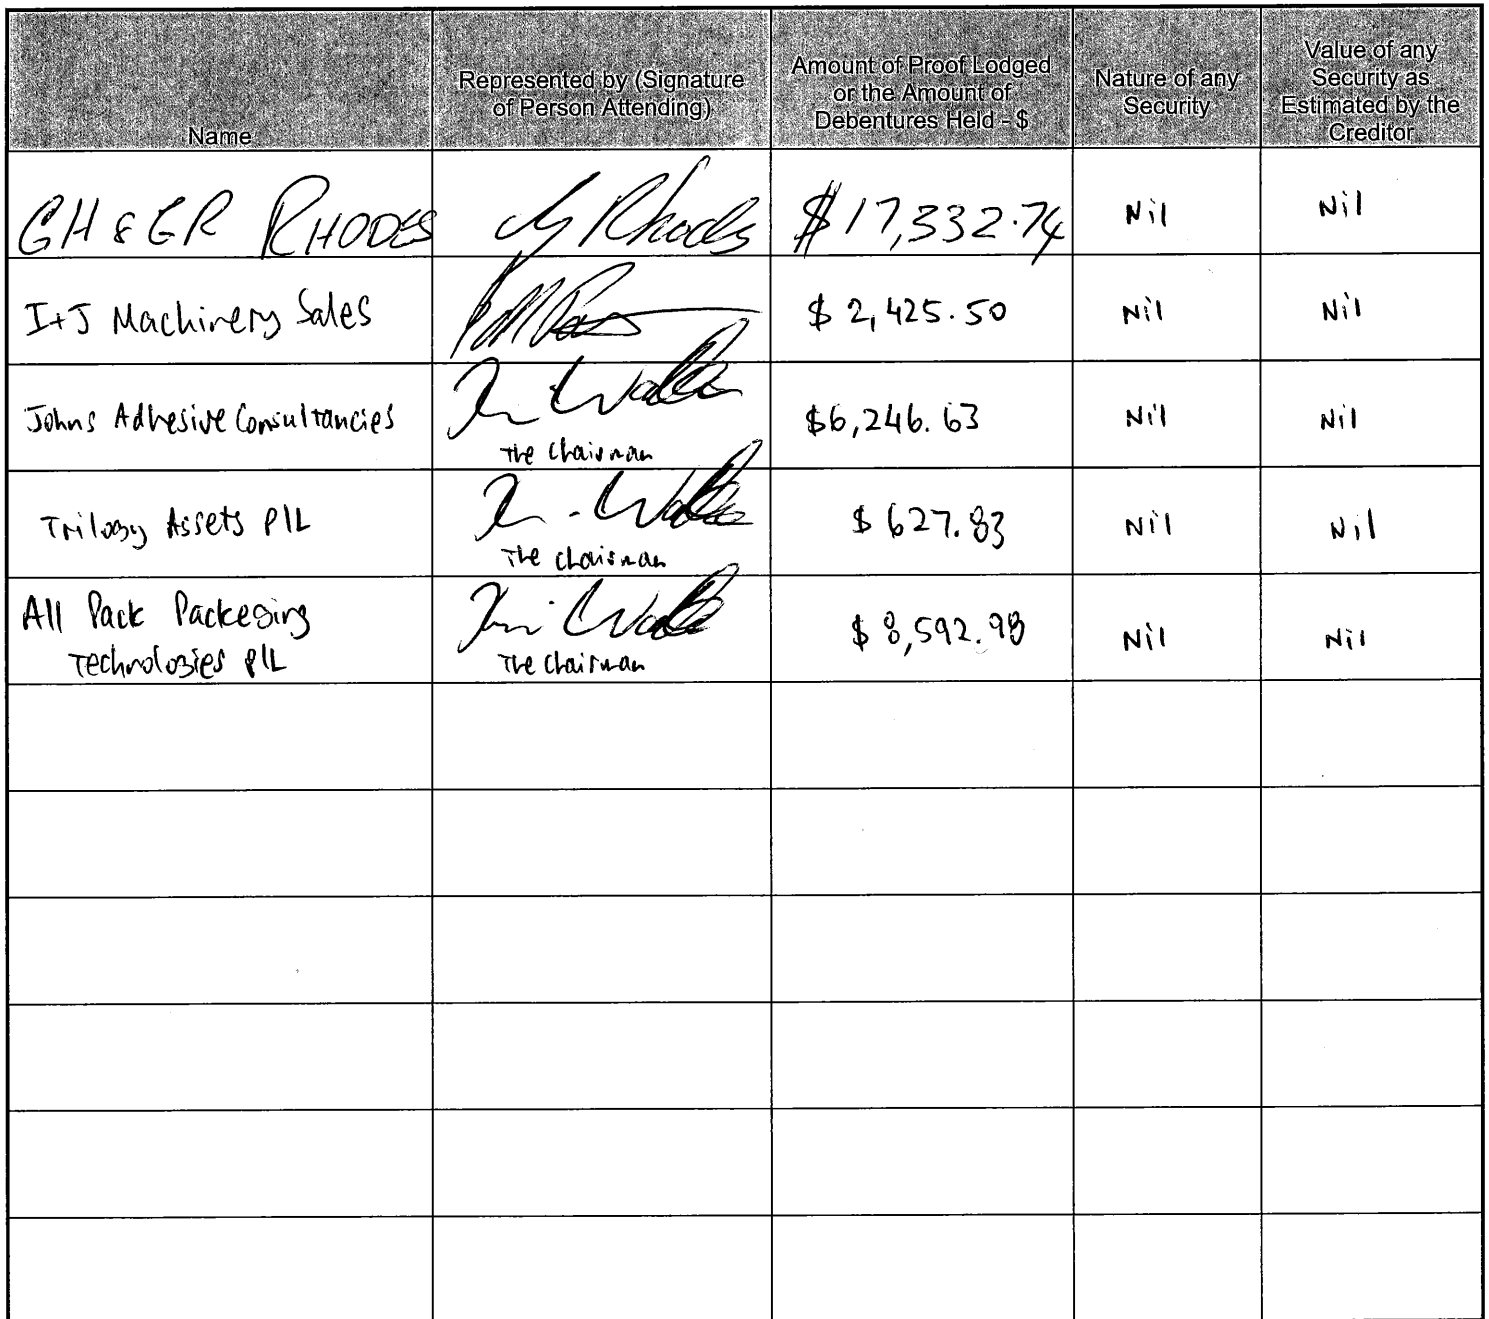 Name
Represented by (Signature
of Person Attending)
Amount of Proof Lodged
or the Amount of
Debentures Held - $
Nature of any
Security
Value of any
Security as
Estimated by the
Creditor
GH & GR RHODES
Rhodes
$17,332.74
Nil
Nil
I+J Machinery Sales
$ 2,425.50
Nil
Nil
Johns Adhesive Consultancies
The Chairman
$6,246.63
Nil
Nil
Trilogy Assets P/L
The Chairman
$ 627.83
Nil
Nil
All Pack Packaging
Technologies P/L
The Chairman
$ 8,592.98
Nil
Nil